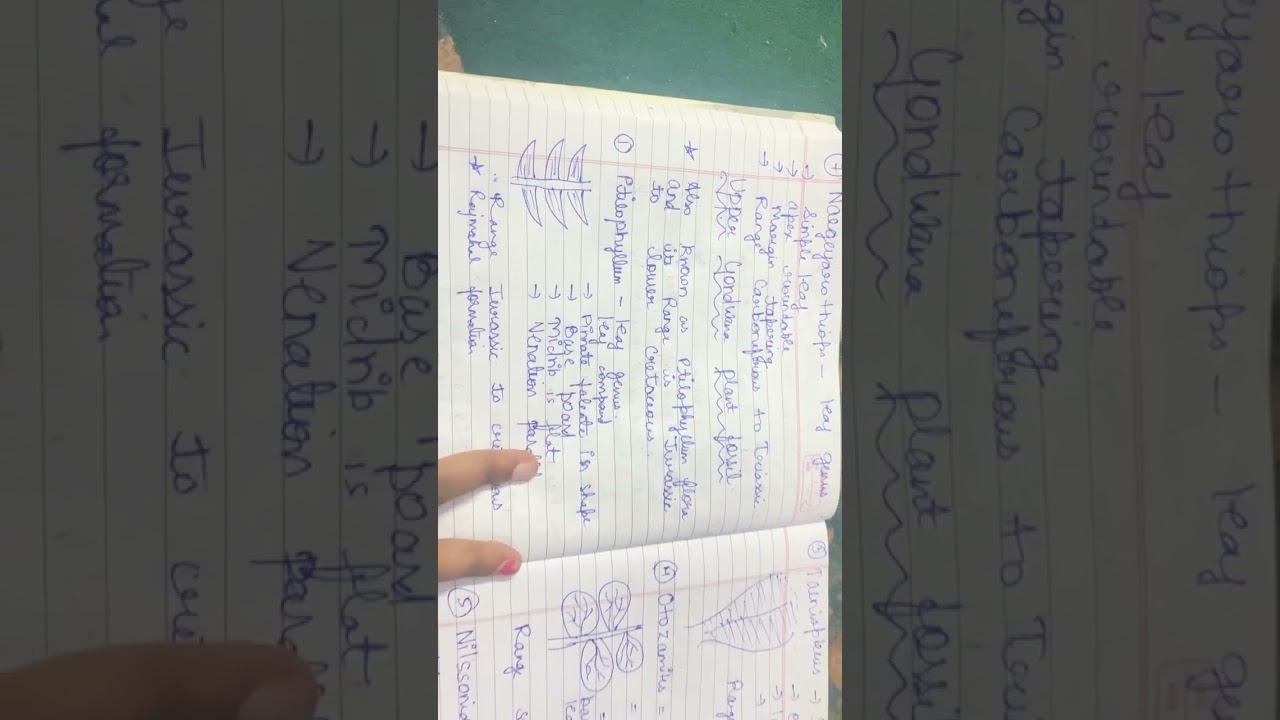 ④ Naegeyarothiops - leaf genus
→ Simple leaf
→ apex roundable
→ Margin tapering
→ Range Carboneferous to Triassic
Upper Gondwana plant fossil
* Also known as Ptilophyllum flora
and its Range is Jurassic
to lower Cretaceous.
① Ptilophyllum - leaf genus.
leaf compard
→ Pinnate falcate in shape
→ Base poard
→ Midrib is flat
→ Venation
∴ Range Jurassic to
* Rajmahal formation
③ Taeniopteris →
④ Otozamites =
Range
⑤ Nilssonia